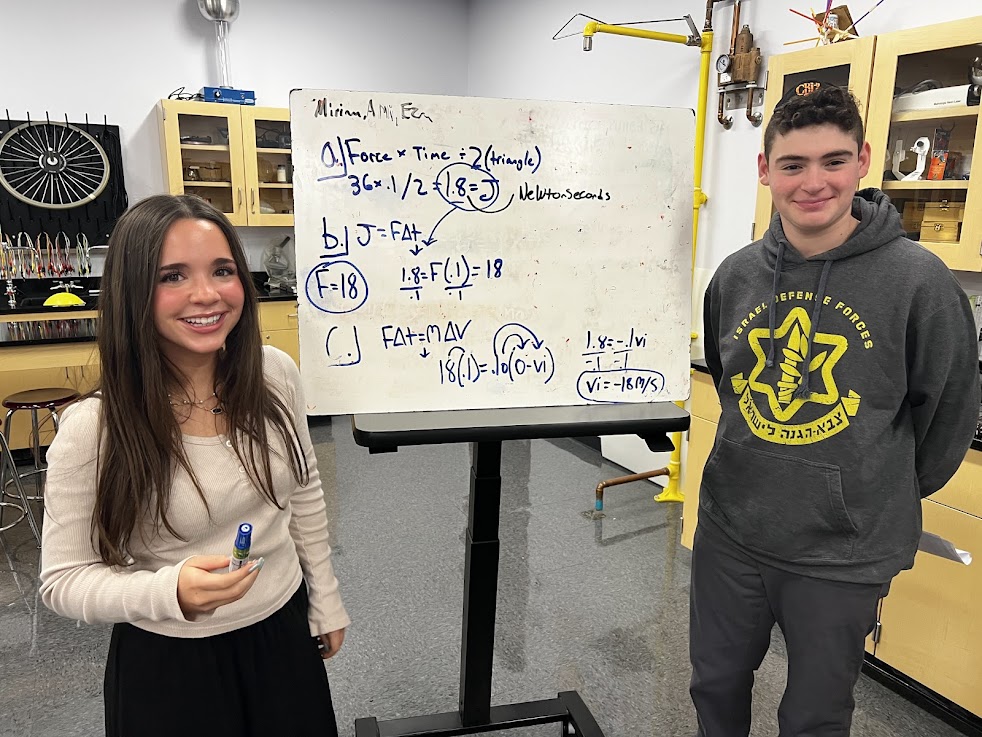 Miriam, Ami, Ezra
a.) Force × Time ÷ 2 (triangle)
36 × .1 / 2 = 1.8 = J
Newton seconds
b.) J = FΔt
F = 18
1.8 = F(.1) = 18
.1 .1
C.) FΔt = MΔV
18(.1) = .10(0 - vi)
1.8 = -.1vi
-.1 -.1
Vi = -18 m/s
ISRAEL DEFENSE FORCES
צבא-הגנה לישראל